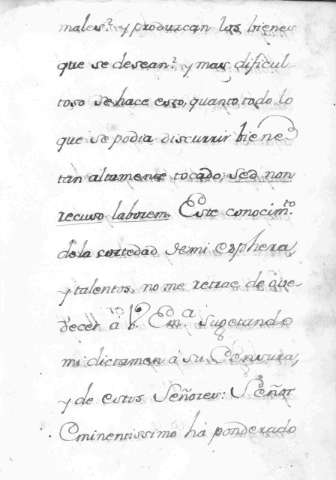 males? y produzcan los bienes
que se desean? y mas dificul
toso se hace esto, quanto todo lo
que se podia discurrir biene
tan altamente tocado, sed non
recuso laborem. Este conocim.to
de la cortedad de mi esphera,
y talentos, no me retrae de obe-
decer á V. Em.a sugetando
mi dictamen á su Censura,
y de estos Señores: Señor
Eminentissimo há ponderado